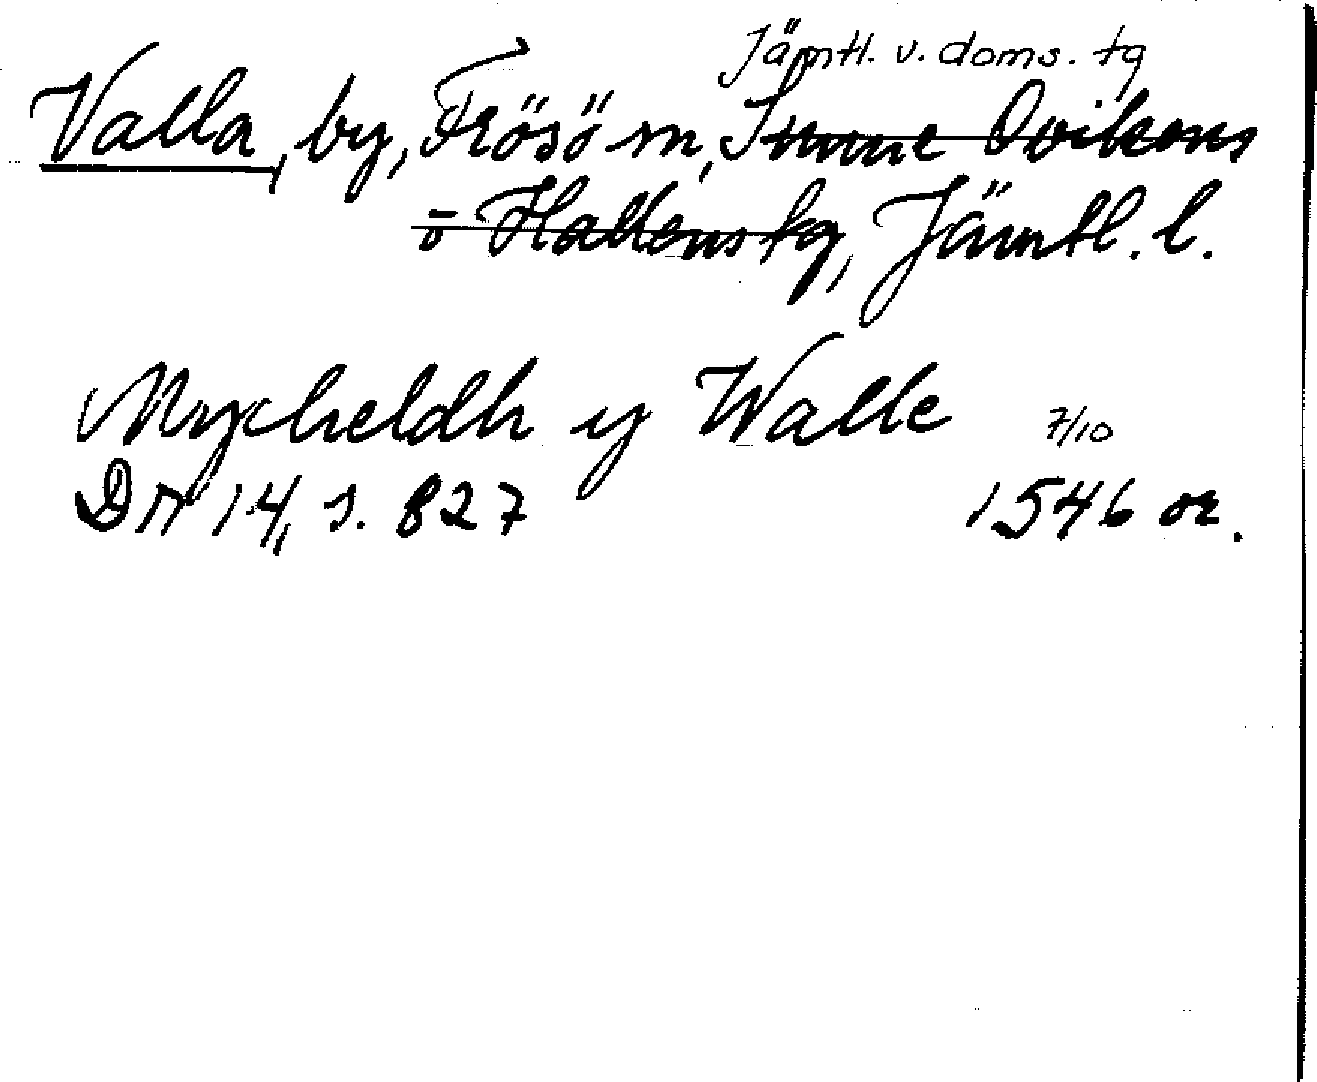 Jämtl. v. doms. tg
Valla, by, Frösö sn, Sunne Ovikens
o Hallens tg, Jämtl. l.
Mycheldh ij Walle 7/10
DN 14, s. 827 1546 or.